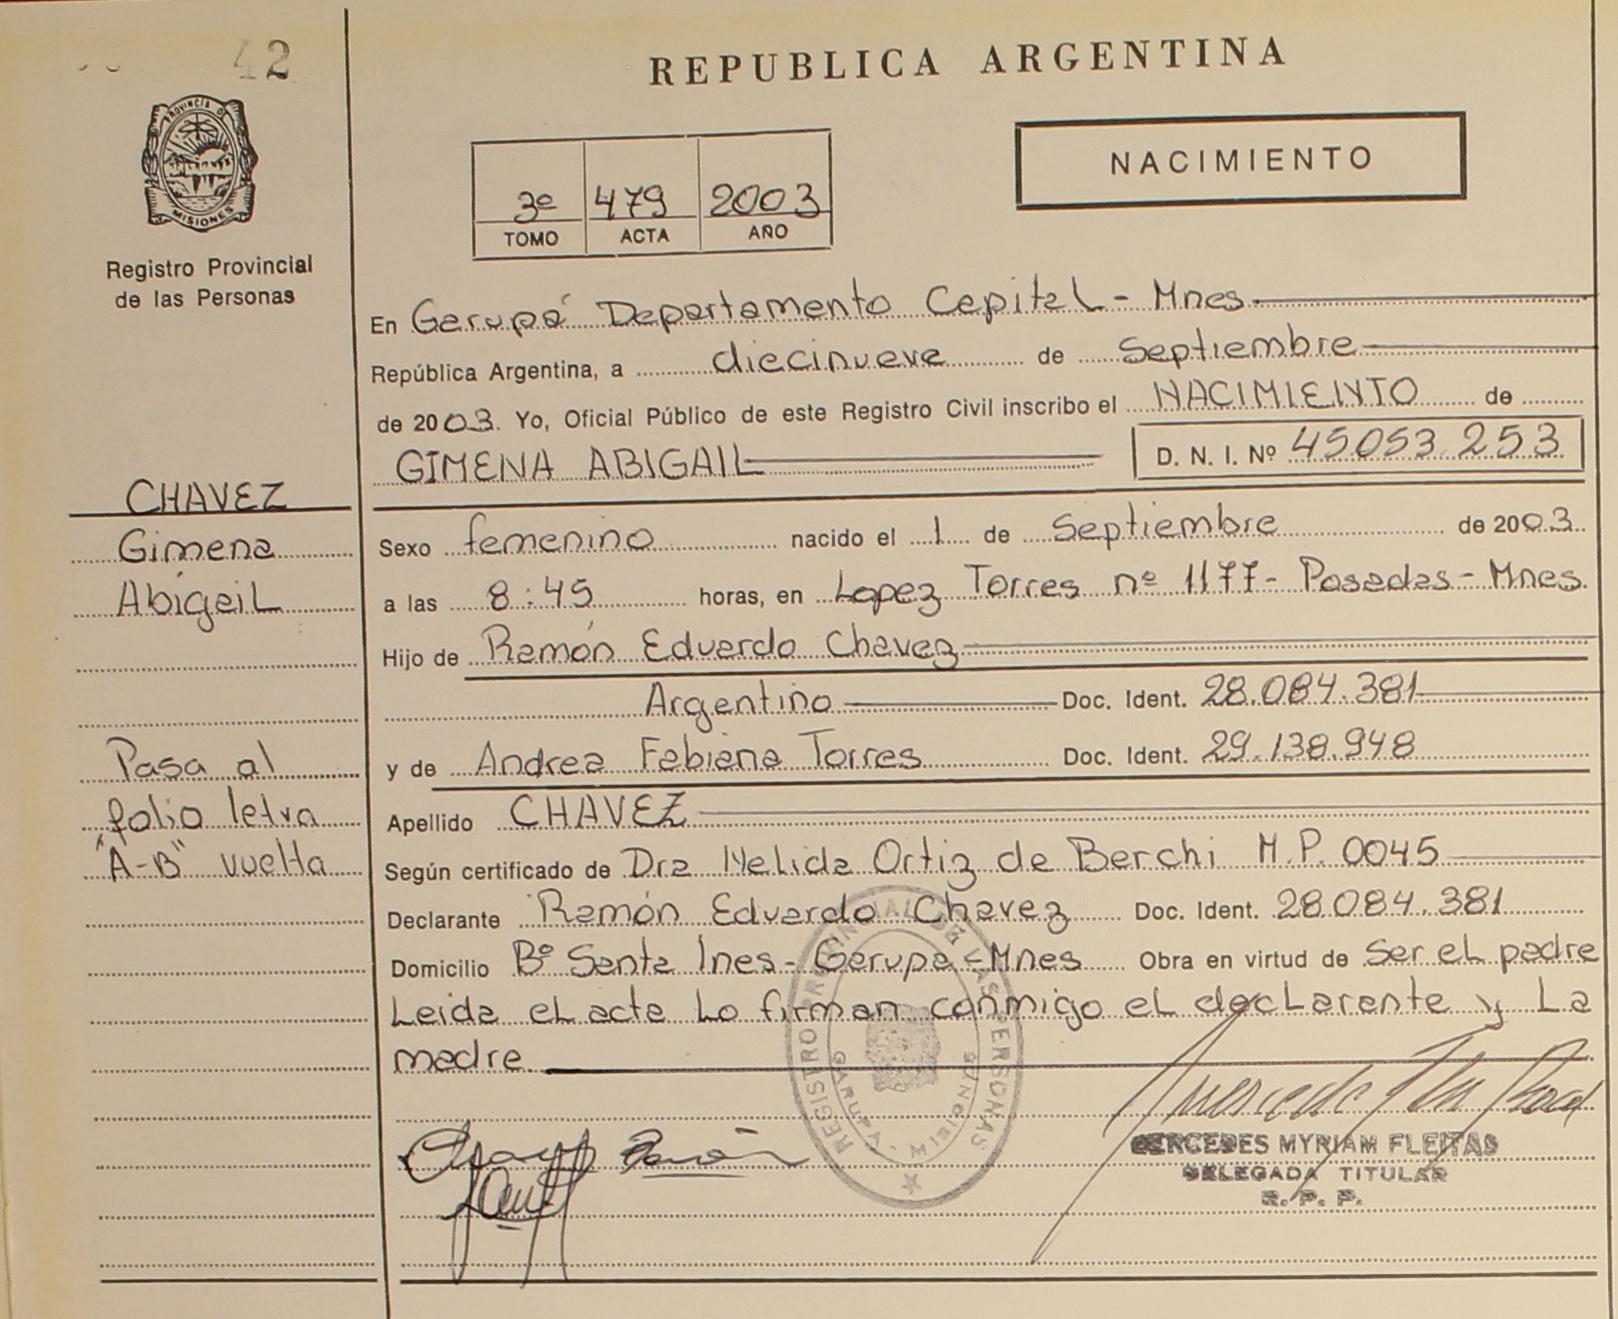 42
REPUBLICA ARGENTINA
PROVINCIA DE
MISIONES
Registro Provincial
de las Personas
NACIMIENTO
3º 479 2003
TOMO ACTA AÑO
En Garupá Departamento Capital - Mnes
República Argentina, a diecinueve de Septiembre
de 2003. Yo, Oficial Público de este Registro Civil inscribo el NACIMIENTO de
GIMENA ABIGAIL D. N. I. Nº 45053.253
CHAVEZ
Gimena
Abigail
Sexo femenino nacido el 1 de Septiembre de 2003.
a las 8:45 horas, en Lopez Torres nº 1177- Posadas - Mnes.
Hijo de Ramón Eduardo Chavez
Argentino Doc. Ident. 28.084.381
y de Andrea Fabiana Torres Doc. Ident. 29.138.948
Apellido CHAVEZ
Pasa al
folio letra
"A-B" vuelta
Según certificado de Dra Nelida Ortiz de Berchi M.P. 0045
Declarante Ramón Eduardo Chavez Doc. Ident. 28.084.381
Domicilio Bº Santa Ines - Garupa - Mnes Obra en virtud de Ser el padre
Leida el acta Lo firman conmigo el declarente y La
madre
REGISTRO PROVINCIAL DE LAS PERSONAS
GARUPA - MISIONES
MERCEDES MYRIAM FLEITAS
DELEGADA TITULAR
R. P. P.